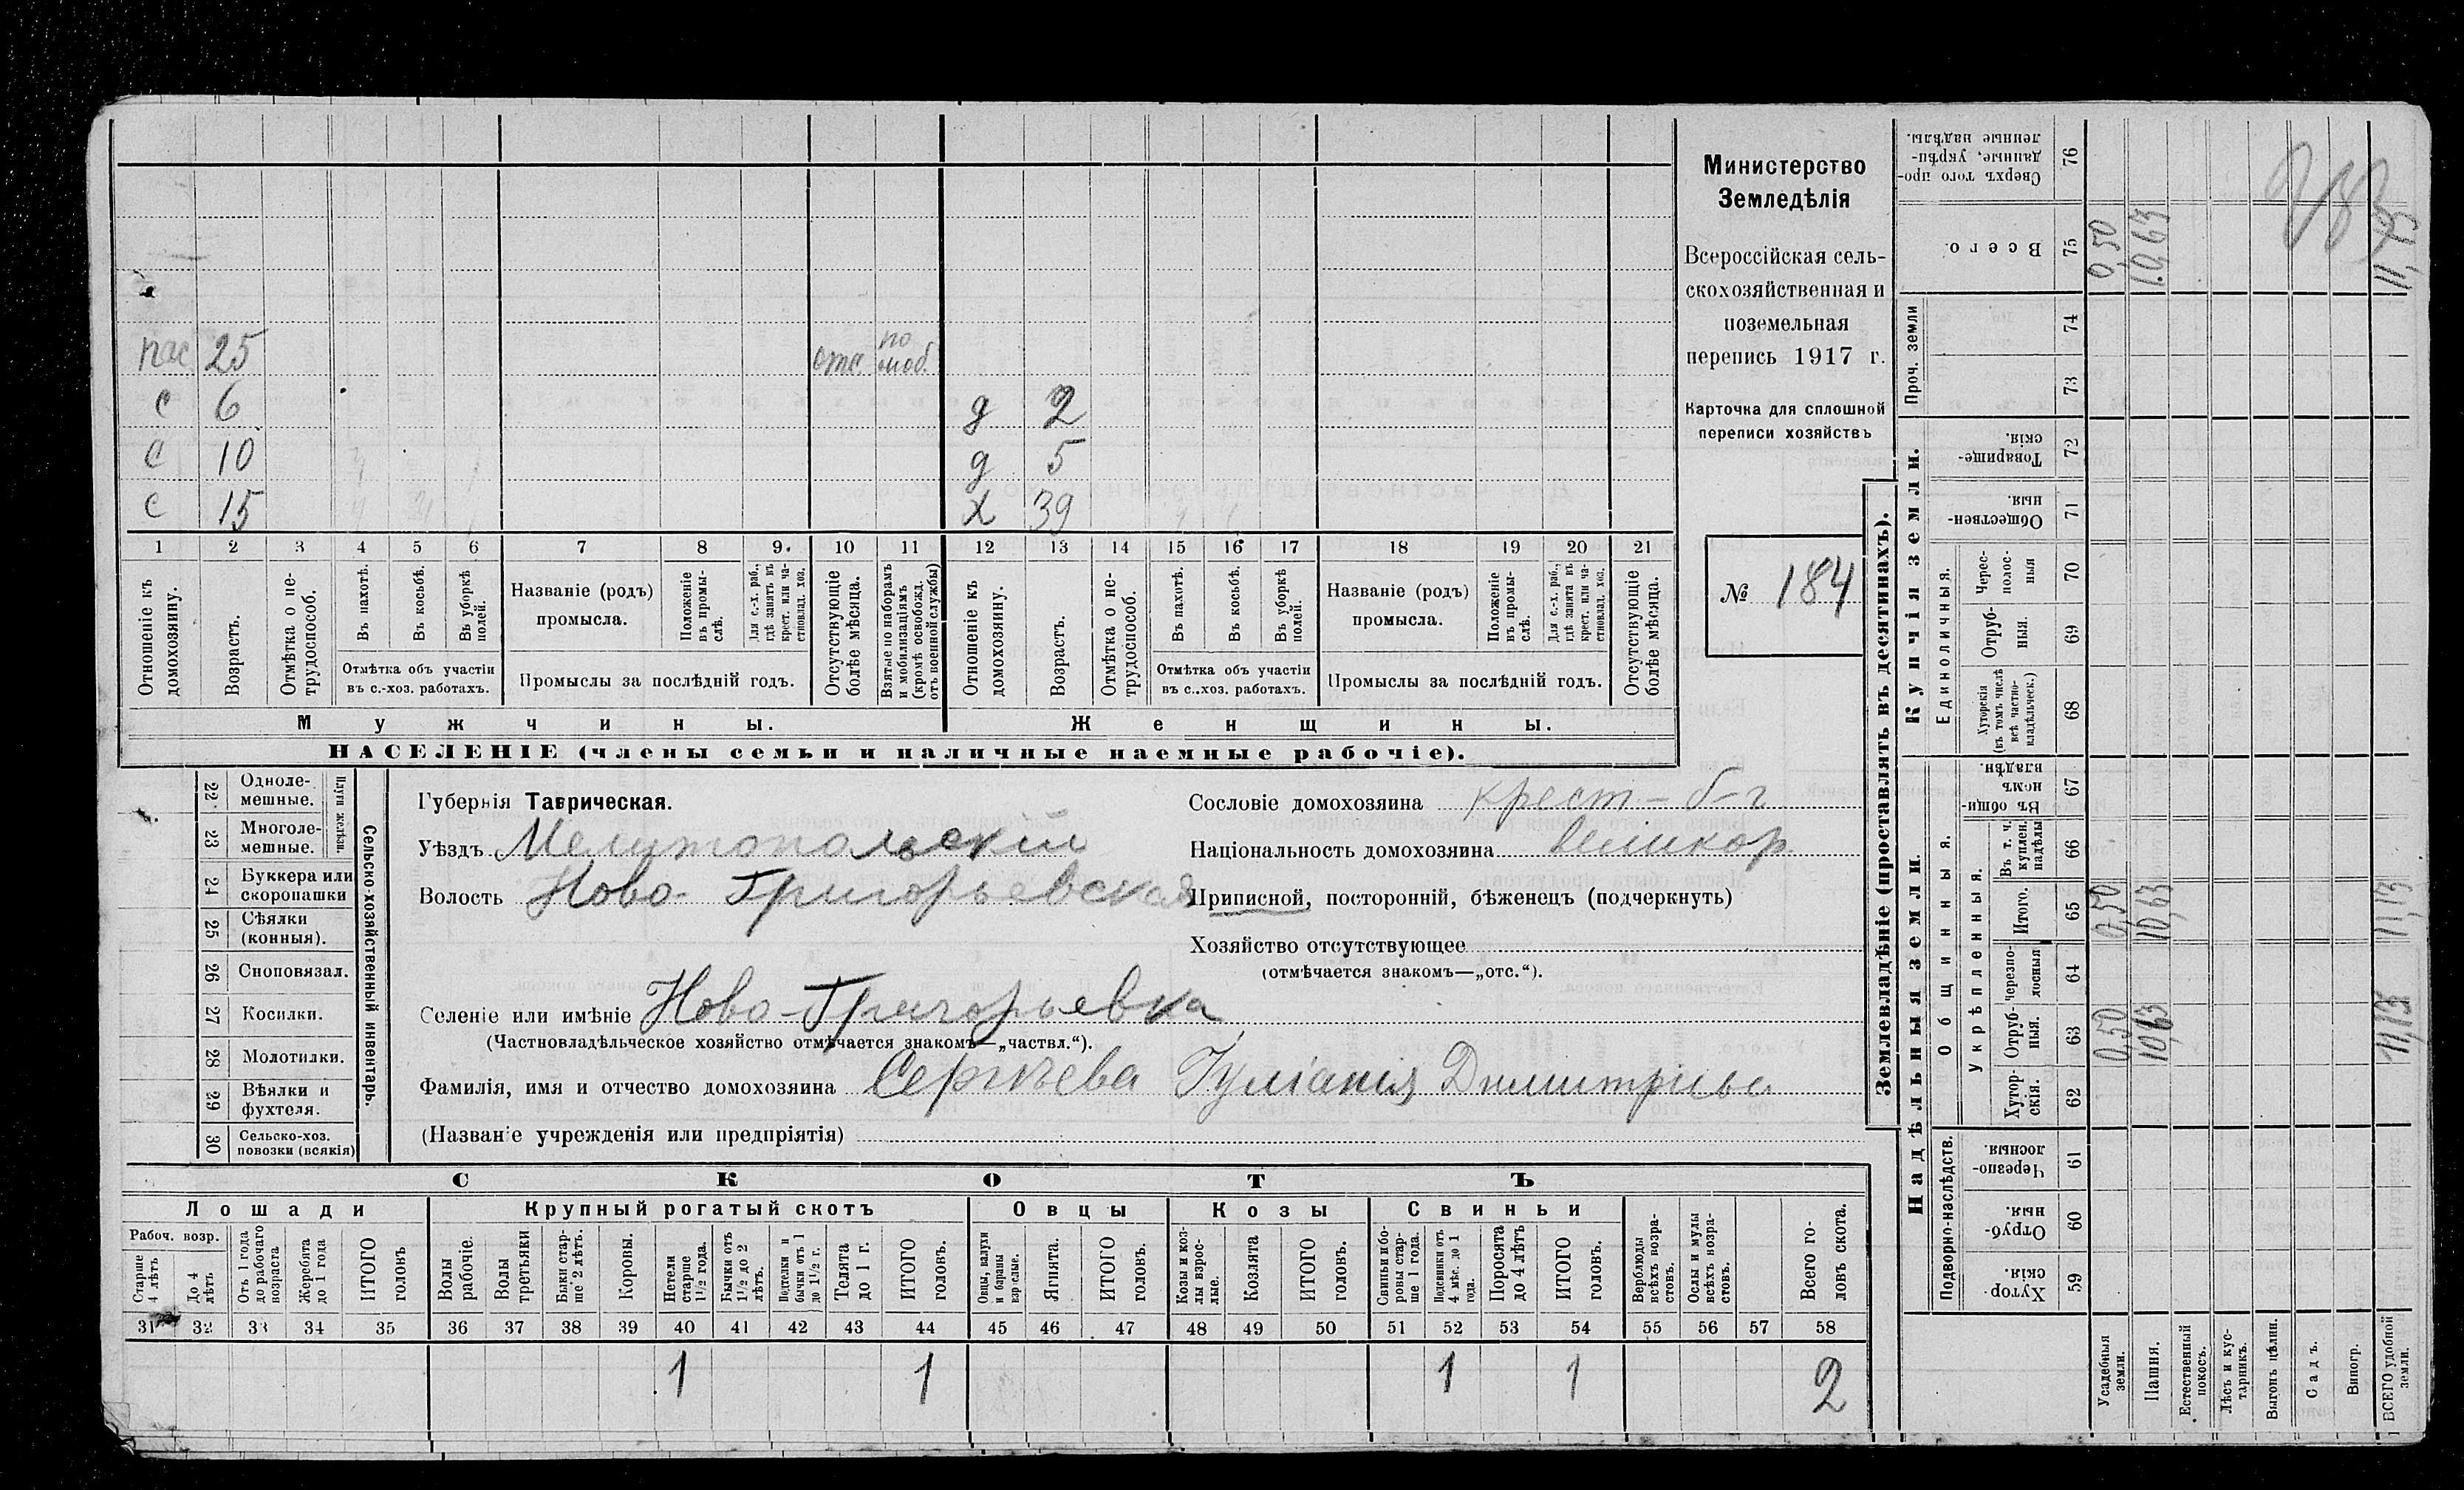 пас 25 отс. по моб.
с 6 д 2
с 10 д 5
с 15 х 39
1 2 3 4 5 6 7 8 9. 10 11 12 13 14 15 16 17 18 19 20 21
Отношеніе къ домохозяину.
Возрастъ.
Отмѣтка о не-трудоспособ.
Въ пахотѣ.
Въ косьбѣ.
Въ уборкѣ полей.
Отмѣтка объ участіи
въ с.-хоз. работахъ.
Названіе (родъ)
промысла.
Положеніе въ промы-слѣ.
Для с.-х. раб., гдѣ занятъ въ крест. или ча-стновлад. хоз.
Промыслы за послѣдній годъ.
Отсутствующіе болѣе мѣсяца.
Взятые по наборамъ и мобилизаціямъ (кромѣ освобожд. отъ военной службы)
Отношеніе къ домохозяину.
Возрастъ.
Отмѣтка о не-трудоспособ.
Въ пахотѣ.
Въ косьбѣ.
Въ уборкѣ полей.
Отмѣтка объ участіи
въ с..хоз. работахъ.
Названіе (родъ)
промысла.
Положеніе въ промы-слѣ.
Для с.-х. раб., гдѣ занята въ крест. или ча-стновлад. хоз.
Промыслы за послѣдній годъ.
Отсутствующіе болѣе мѣсяца.
Мужчины.
Женщины.
НАСЕЛЕНІЕ (члены семьи и наличные наемные рабочіе).
Министерство
Земледѣлія
Всероссійская сель-
скохозяйственная и
поземельная
перепись 1917 г.
Карточка для сплошной
переписи хозяйствъ
№ 184
22 Одноле-мешные.
23 Многоле-мешные.
Плуги желѣзн.
24 Буккера или скоропашки
25 Сѣялки (конныя).
26 Сноповязал.
27 Косилки.
28 Молотилки.
29 Вѣялки и фухтеля.
30 Сельско-хоз. повозки (всякія)
Сельско-хозяйственный инвентарь.
Губернія Таврическая.
Уѣздъ Мелитопольскій
Волость Ново-Григорьевская
Селеніе или имѣніе Ново-Григорьевка
(Частновладѣльческое хозяйство отмѣчается знакомъ—„частвл.“).
Фамилія, имя и отчество домохозяина Сергѣева Іуліанія Димитріев
(Названіе учрежденія или предпріятія)
Сословіе домохозяина крест-
Національность домохозяина великор
Приписной, посторонній, бѣженецъ (подчеркнуть)
Хозяйство отсутствующее
(отмѣчается знакомъ—„отс.“).
СКОТЪ
Лошади Крупный рогатый скотъ Овцы Козы Свиньи
Рабоч. возр.
Старше 4 лѣтъ
До 4 лѣтъ
Отъ 1 года до рабочаго возраста
Жеребята до 1 года
ИТОГО головъ
Волы рабочіе.
Волы третьяки
Быки стар-ше 2 лѣтъ.
Коровы.
Нетели старше 1 1/2 года.
Бычки отъ 1 1/2 до 2 лѣтъ.
Подтелки и бычки отъ 1 до 1 1/2 г.
Телята до 1 г.
ИТОГО головъ.
Овцы, валухи и бараны взрослые.
Ягнята.
ИТОГО головъ.
Козы и коз-лы взрос-лые.
Козлята
ИТОГО головъ.
Свиньи и бо-ровы стар-ше 1 года.
Подсвинки отъ 4 мѣс. до 1 года.
Поросята до 4 лѣтъ
ИТОГО головъ.
Верблюды всѣхъ возра-стовъ.
Ослы и мулы всѣхъ возра-стовъ.
Всего го-ловъ скота.
31 32 33 34 35 36 37 38 39 40 41 42 43 44 45 46 47 48 49 50 51 52 53 54 55 56 57 58
1 1 1 1 2
Землевладѣніе (проставлять въ десятинахъ).
Купчія земли.
Надѣльныя земли.
Сверхъ того про-данные, укрѣп-ленные надѣлы. 76
Всего. 75 0,50 10,63 11,13
Проч. земли 74
73
Товарище-скія. 72
Обществен-ныя. 71
Единоличныя.
Черес-полос-ныя 70
Отруб-ныя. 69
Хуторскія (въ томъ числѣ всѣ частно-владѣльческ.) 68
Общинныя.
Въ общин-номъ владѣн. 67
Укрѣпленныя.
Въ т. ч. куплен. надѣлы 66
Итого. 65 0,50 10,63 11,13
Черезпо-лосныя 64
Отруб-ныя. 63 0,50 10,63 11,13
Хутор-скія. 62
Подворно-наслѣдств.
Черезпо-лосныя. 61
Отруб-ныя. 60
Хутор-скія. 59
Усадебныя земли.
Пашня.
Естественный покосъ.
Лѣсъ и кус-тарникъ.
Выгонъ цѣлин.
Садъ.
Виногр.
ВСЕГО удобной земли.